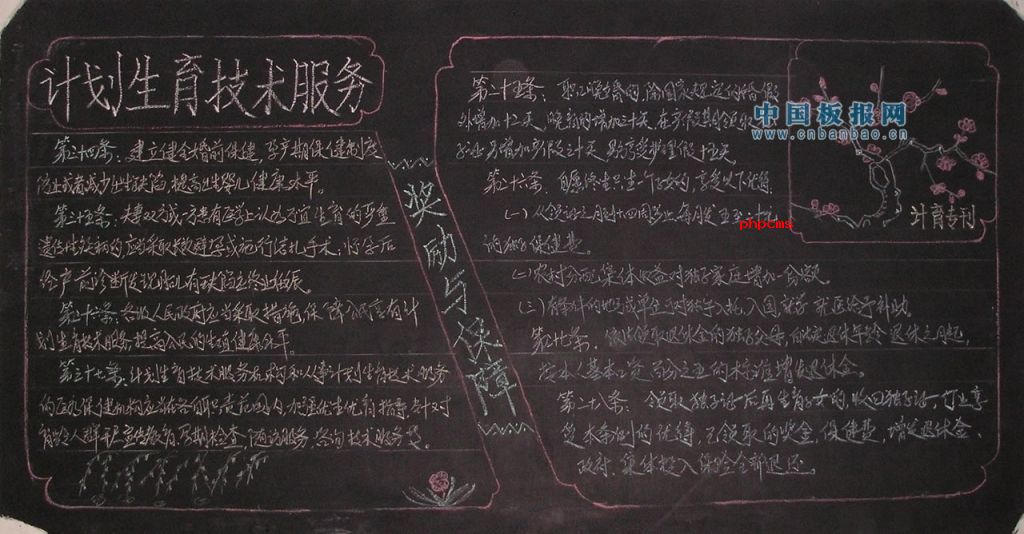 计划生育技术服务
第二十四条:建立健全婚前保健,孕产期保健制度
防止或者减少出生缺陷,提高出生婴儿健康水平。
第二十五条:夫妻双方或一方患有医学上认为不宜生育的严重
遗传性疾病的,应当采取长效避孕或施行结扎手术;怀孕后
经产前诊断发现胎儿有缺陷应终止妊娠。
各级人民政府应当采取措施,保障公民享有计
划生育技术服务提高公民的生殖健康水平。
计划生育技术服务机构和从事计划生育技术服务
的医疗保健机构应当在各自职责范围内,
育龄人群开展 孕情检查、随访服务、咨询技术服务等。
奖励与保障
第二十五条:职工晚婚的,除国家规定的婚假
外增加十二天,晚育的增加三十天,在产假期领取
另增加产假三十天
第二十六条:自愿终生只生一个子女的,享受以下优待:
(一)从领证之月到十四周岁止,每月发五至十元
的独子保健费。
(二)农村分配集体收益时独子家庭增加一份额。
(三)有条件的地区或单位应对独子入托、入园、就学、就医给予补助。
退休年龄退休之月起,
按本人基本工资 的标准增发退休金。
第二十八条:领取独子证后再生育子女的,收回独子证,停止享
受本条例的优待,已领取的奖金、保健费、增发退休金、
政府、集体投入保险全部退还。
计育专刊
中国板报网
www.cnbanbao.cn
phpcms